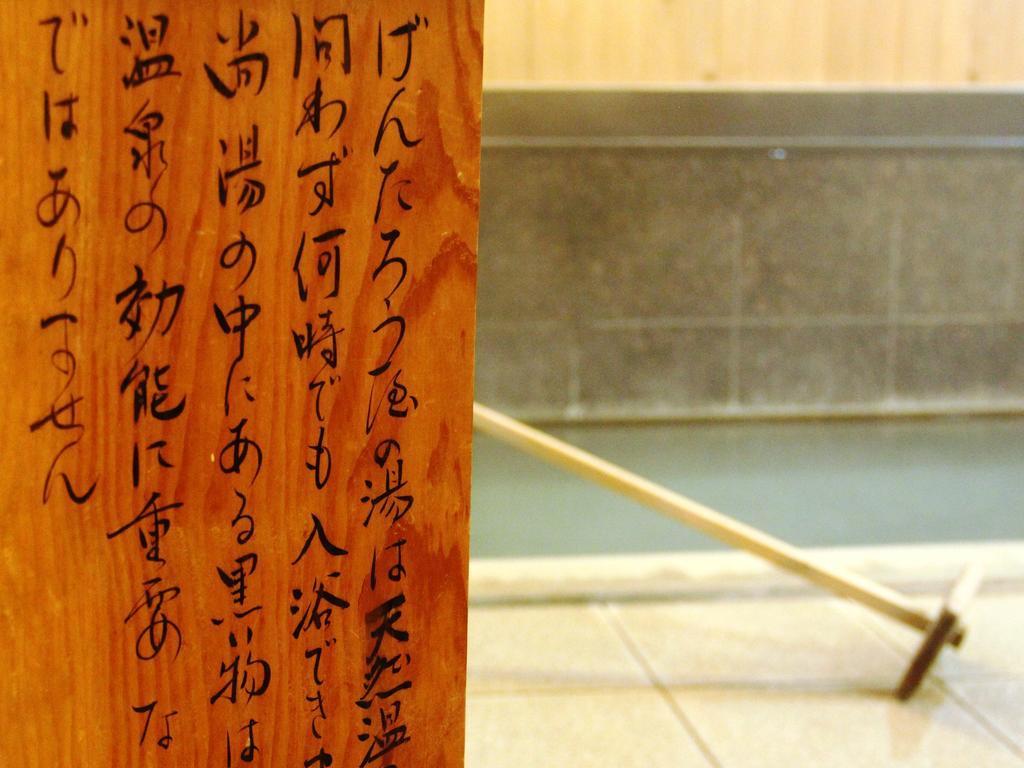 げんたろう湯の湯は天然温
問わず何時でも入浴でき
尚湯の中にある黒い物は
温泉の効能に重要な
ではありません